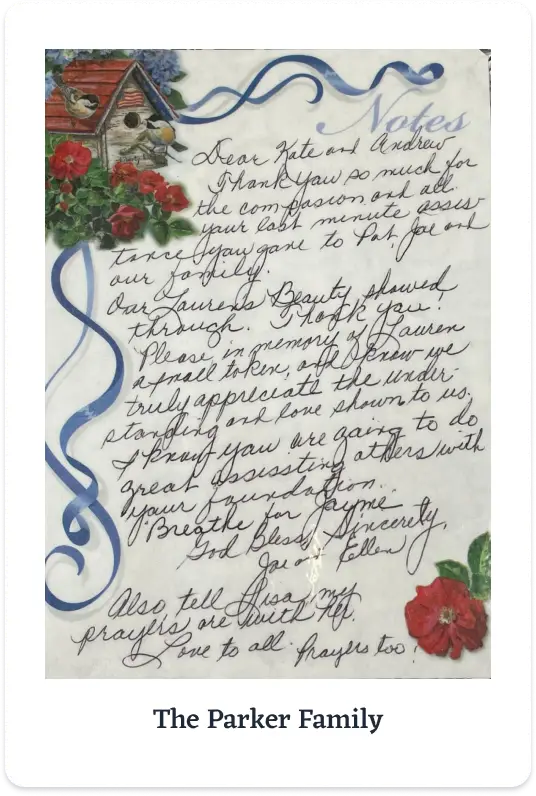 Notes
Dear Kate and Andrew
Thank you so much for
the compasion and all
your last minute assis-
tance you gave to Pat, Joe and
our family.
Our Laurens Beauty, showed
through. Thank you!
Please, in memory of Lauren
a small token, and know we
truly appreciate the under-
standing and love shown to us.
I know you are going to do
great assissting others with
your foundation.
"Breathe for Jayme
God Bless, Sincerely,
Joe and Ellen
Also, tell Lisa, my
prayers are with her.
Love to all. Prayers too!
The Parker Family